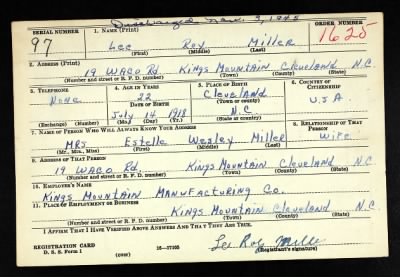 Discharged Nov. 3, 1945
SERIAL NUMBER 1. NAME (Print) ORDER NUMBER
97 Lee Roy Miller 1625
(First) (Middle) (Last)
2. ADDRESS (Print)
19 WACO Rd. Kings Mountain Cleveland N.C
(Number and street or R. F. D. number) (Town) (County) (State)
3. TELEPHONE 4. AGE IN YEARS 5. PLACE OF BIRTH 6. COUNTRY OF CITIZENSHIP
None 22 Cleveland U.S.A
DATE OF BIRTH (Town or county)
July 14 1918 N.C
(Exchange) (Number) (Mo.) (Day) (Yr.) (State or country)
7. NAME OF PERSON WHO WILL ALWAYS KNOW YOUR ADDRESS 8. RELATIONSHIP OF THAT PERSON
MRS Estelle Wesley Miller Wife
(Mr., Mrs., Miss) (First) (Middle) (Last)
9. ADDRESS OF THAT PERSON
19 WACO Rd Kings Mountain Cleveland N.C
(Number and street or R. F. D. number) (Town) (County) (State)
10. EMPLOYER'S NAME
Kings Mountain Manufacturing Co.
11. PLACE OF EMPLOYMENT OR BUSINESS
Kings Mountain Cleveland N.C
(Number and street or R. F. D. number) (Town) (County) (State)
I AFFIRM THAT I HAVE VERIFIED ABOVE ANSWERS AND THAT THEY ARE TRUE.
REGISTRATION CARD Lee Roy Miller
D. S. S. Form 1 (over) 16—17105 (Registrant's signature)